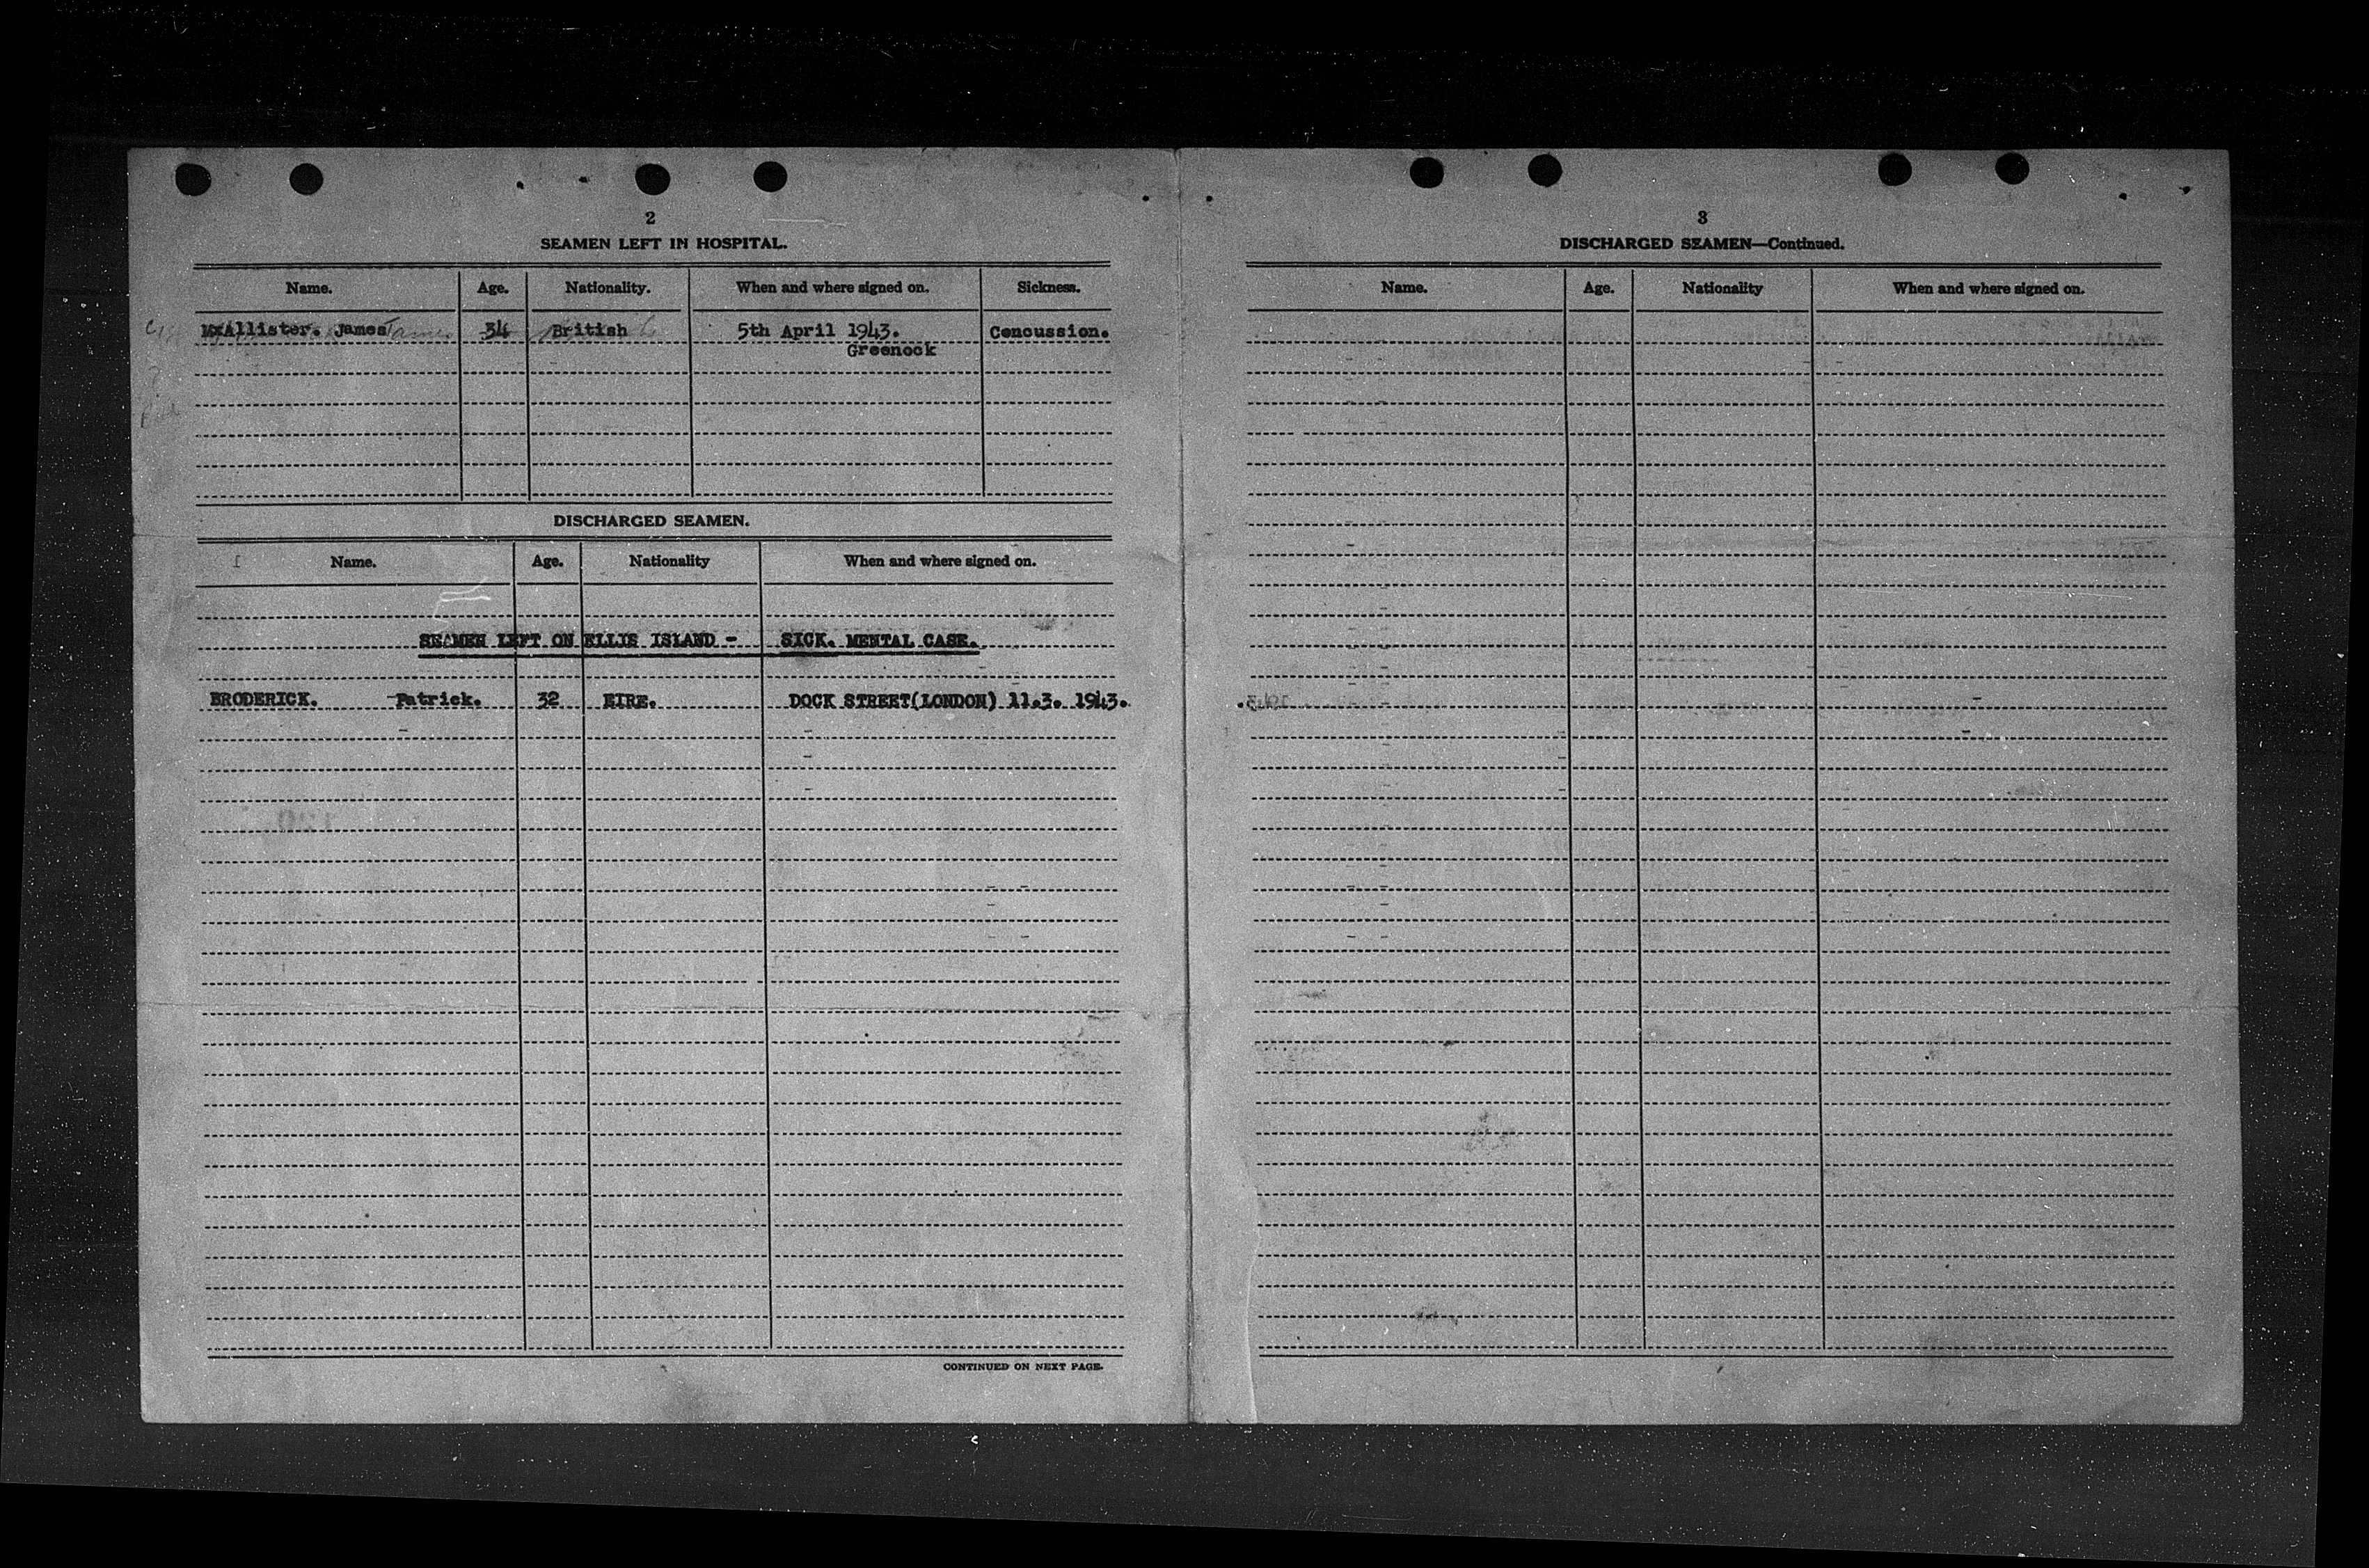 2
SEAMEN LEFT IN HOSPITAL.
Name. Age. Nationality. When and where signed on. Sickness.
McAllister. James James 34 British 5th April 1943. Concussion.
Greenock
DISCHARGED SEAMEN.
Name. Age. Nationality When and where signed on.
SEAMEN LEFT ON ELLIS ISLAND - SICK. MENTAL CASE.
BRODERICK. Patrick. 32 EIRE. DOCK STREET(LONDON) 11.3. 1943.
CONTINUED ON NEXT PAGE.
3
DISCHARGED SEAMEN—Continued.
Name. Age. Nationality When and where signed on.